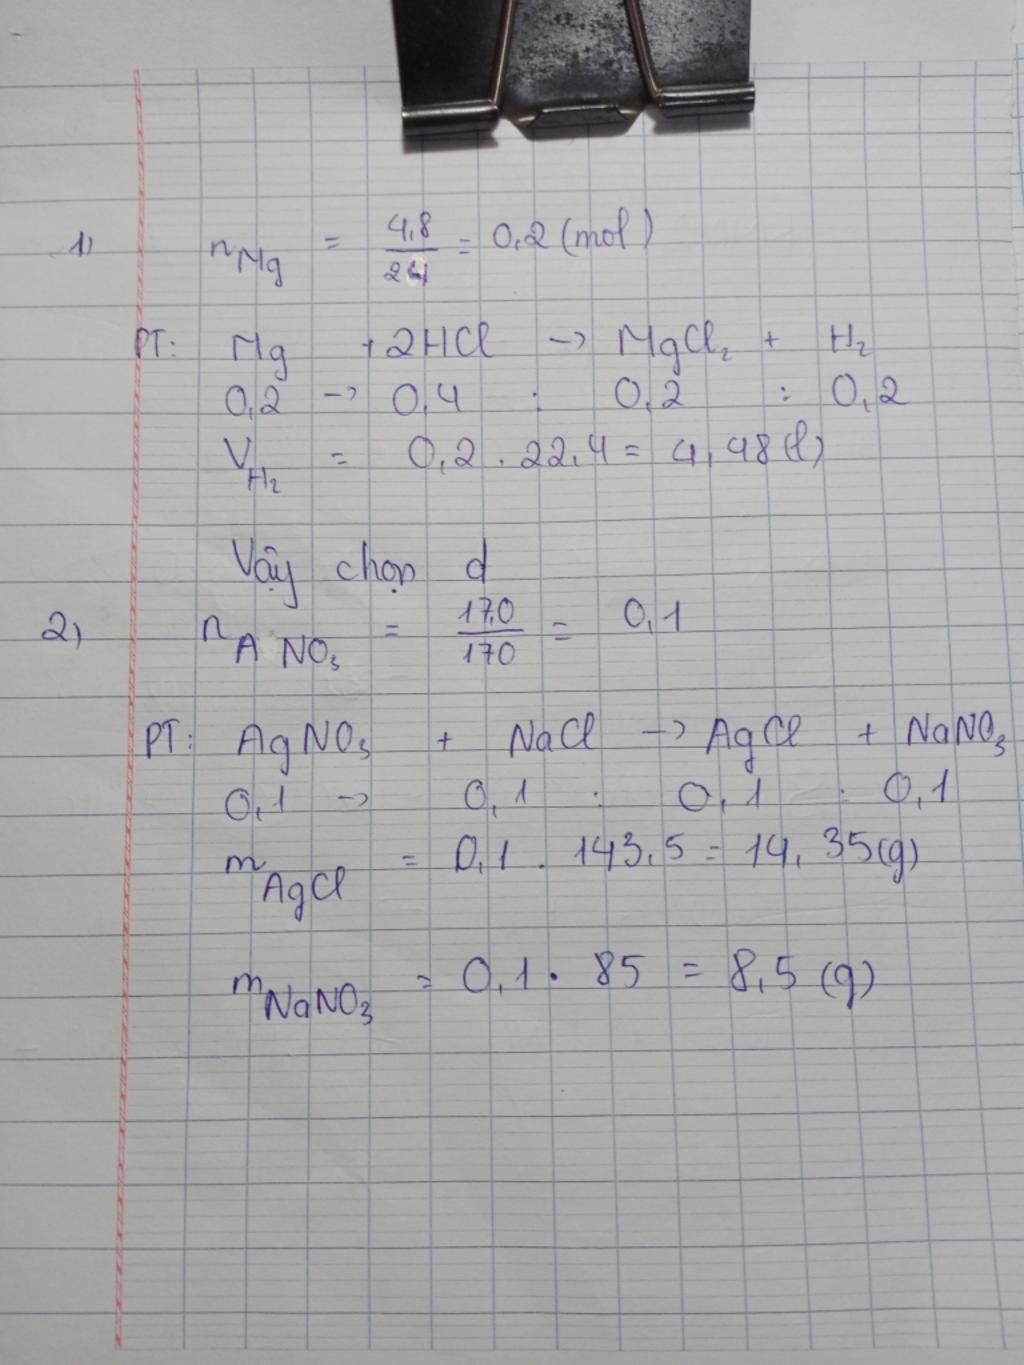 1) nMg = 4,8/24 = 0,2 (mol)
PT: Mg + 2HCl -> MgCl₂ + H₂
0,2 -> 0,4 : 0,2 : 0,2
VH₂ = 0,2 . 22,4 = 4,48 (l)
Vậy chọn d
2) nA NO₃ = 17,0/170 = 0,1
PT: AgNO₃ + NaCl -> AgCl + NaNO₃
0,1 -> 0,1 : 0,1 : 0,1
mAgCl = 0,1 . 143,5 = 14,35 (g)
mNaNO₃ = 0,1 . 85 = 8,5 (g)